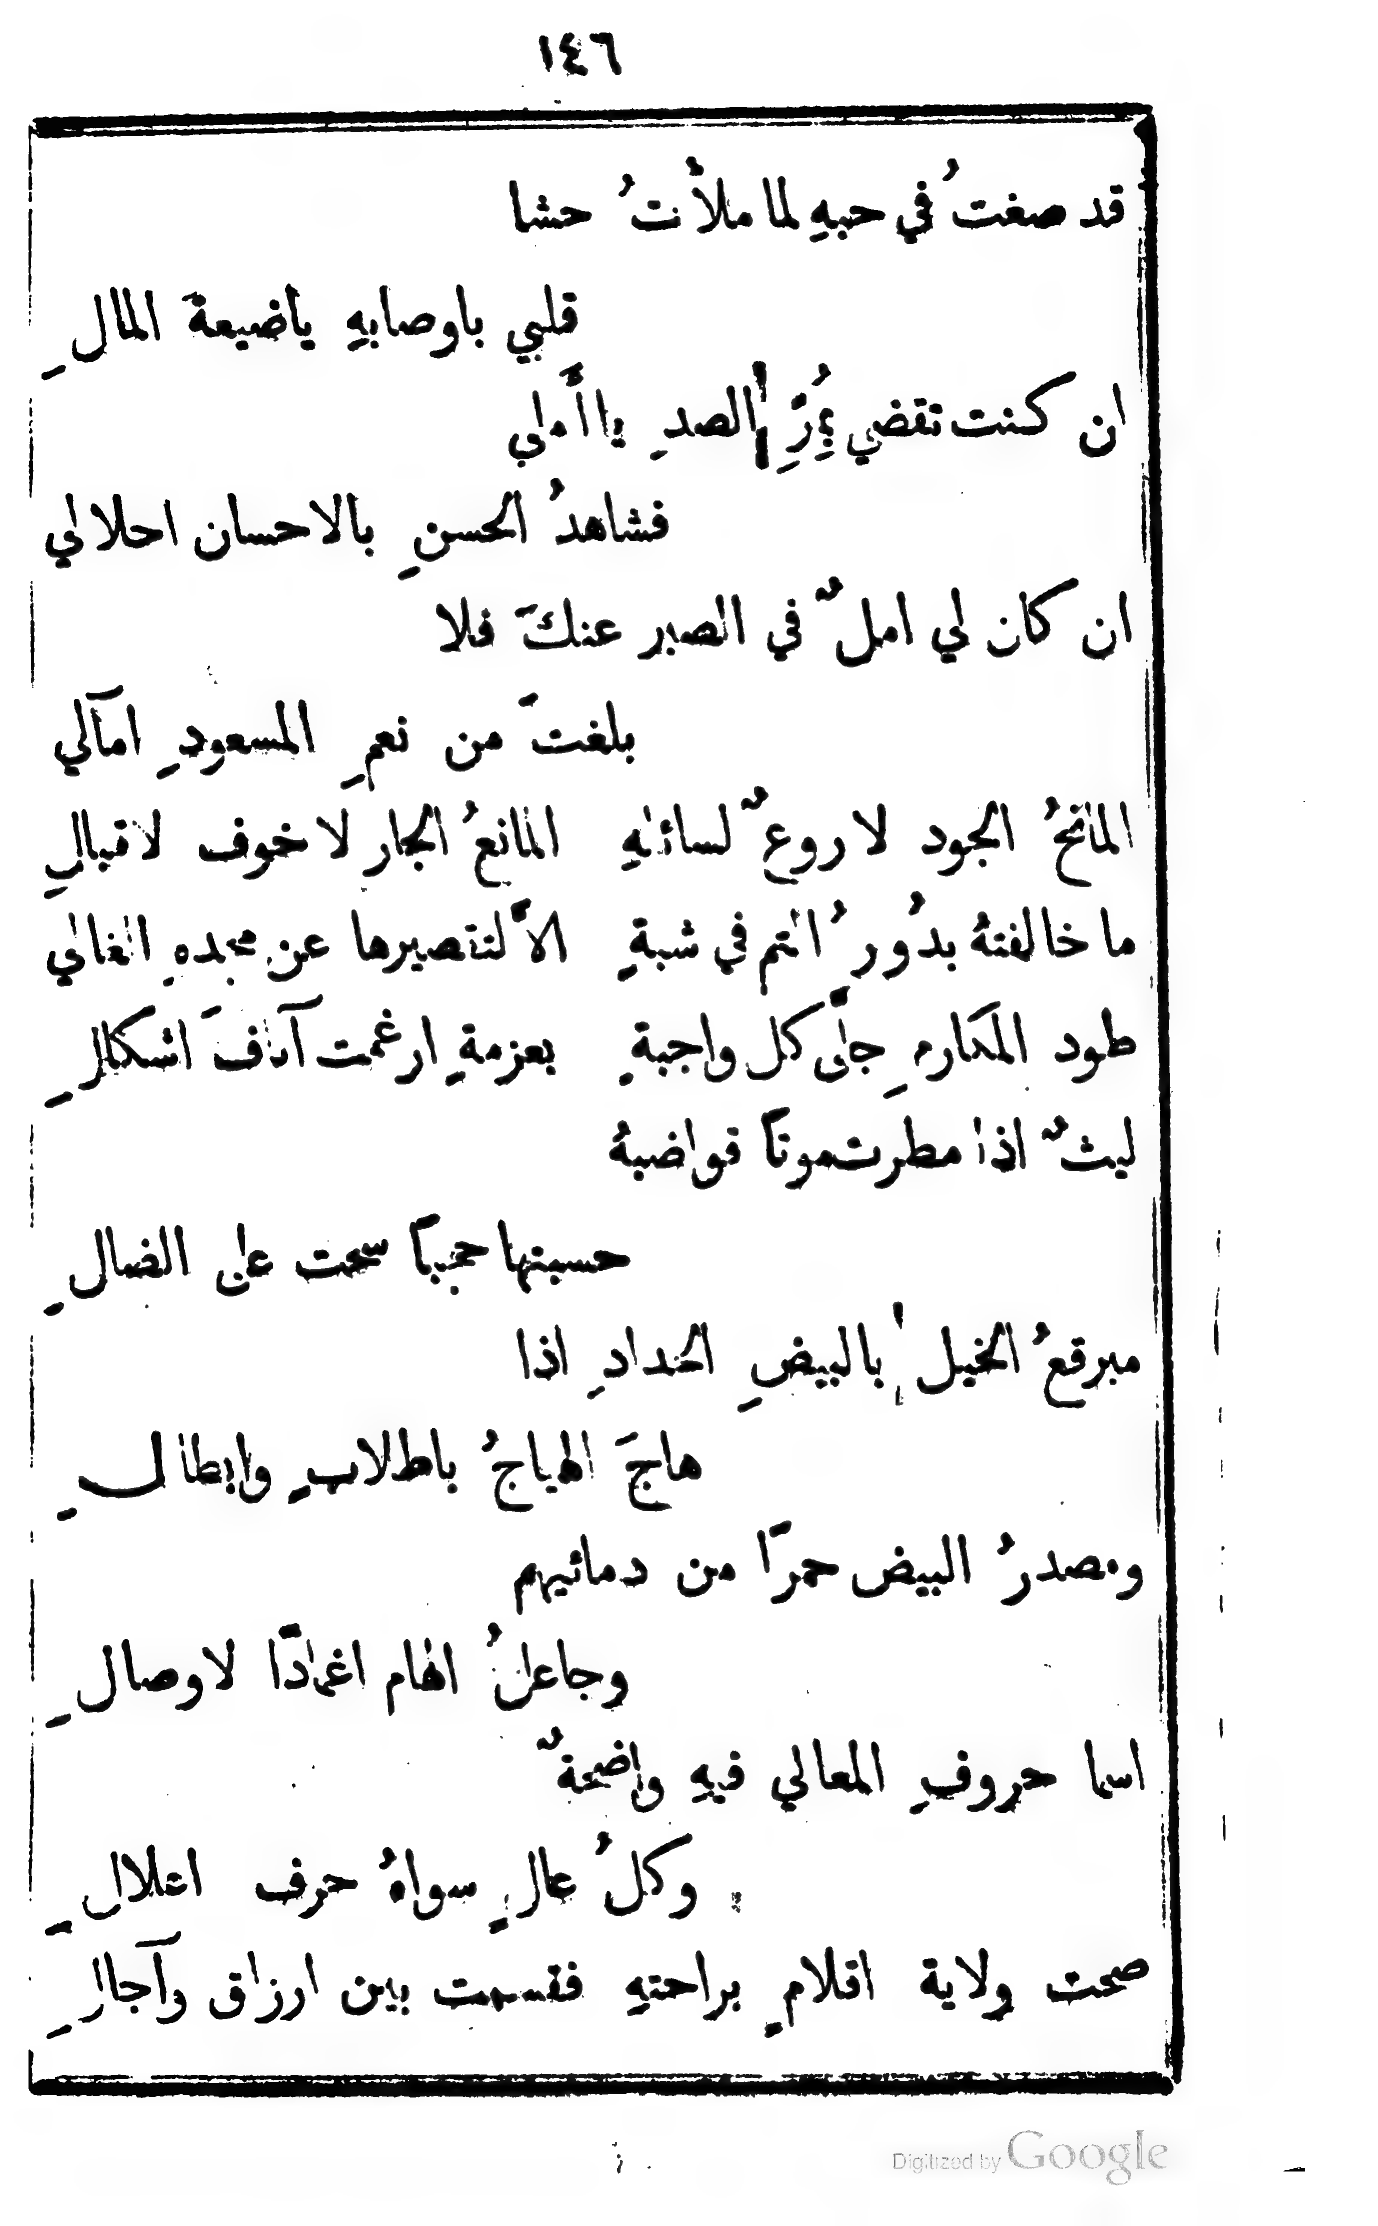 ١٤٦
قد صغتُ في حبهِ لما ملأتُ حشا
قلبي باوصابهِ ياضيعةَ المالِ
ان كنت تقضي بمُرِّ الصدِ يا أملي
فشاهدُ الحسنِ بالاحسان احلالي
ان كان لي املٌ في الصبر عنكَ فلا
بلغتَ من نعمِ المسعودِ امآلي
المانحُ الجود لا روعٌ لسائلهِ المانعُ الجار لا خوف لاقبالِ
ما خالفتهُ بدُورُ التم في شبةٍ الاَّ لتقصيرها عن مجدهِ الغالي
طود المكارمِ جلَّى كل واجبةٍ بعزمةٍ ارغمت آنافَ اشكالِ
ليثٌ اذا مطرت موتًا قواضبهُ
حسبتها سحبًا سحت على الضالِ
مبرقعُ الخيل بالبيضِ الحدادِ اذا
هاجَ الهياجُ باطلابٍ وابطالِ
ومصدرُ البيض حمرًا من دمائيهم
وجاعلُ الهام اغمادًا لاوصالِ
اسما حروفِ المعالي فيهِ واضحةٌ
وكلُ عالٍ سواهُ حرف اعلالِ
صحت ولاية اقلامٍ براحتهِ فقسمت بين ارزاق وآجالِ
Digitized by Google